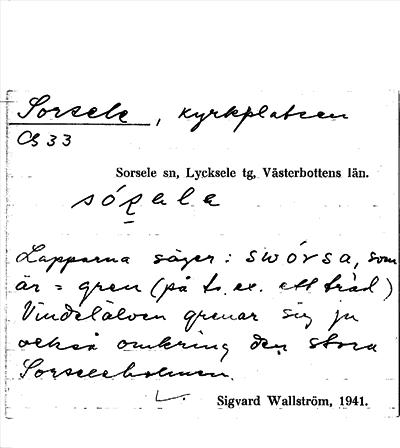 Sorsele, kyrkplatsen
Cb 33
Sorsele sn, Lycksele tg, Västerbottens län.
Lapparna säger: swórsa, som
är = gren (på t. ex. ett träd)
Vindelälven grenar sig ju
också omkring den stora
Sorseleholmen.
Sigvard Wallström, 1941.